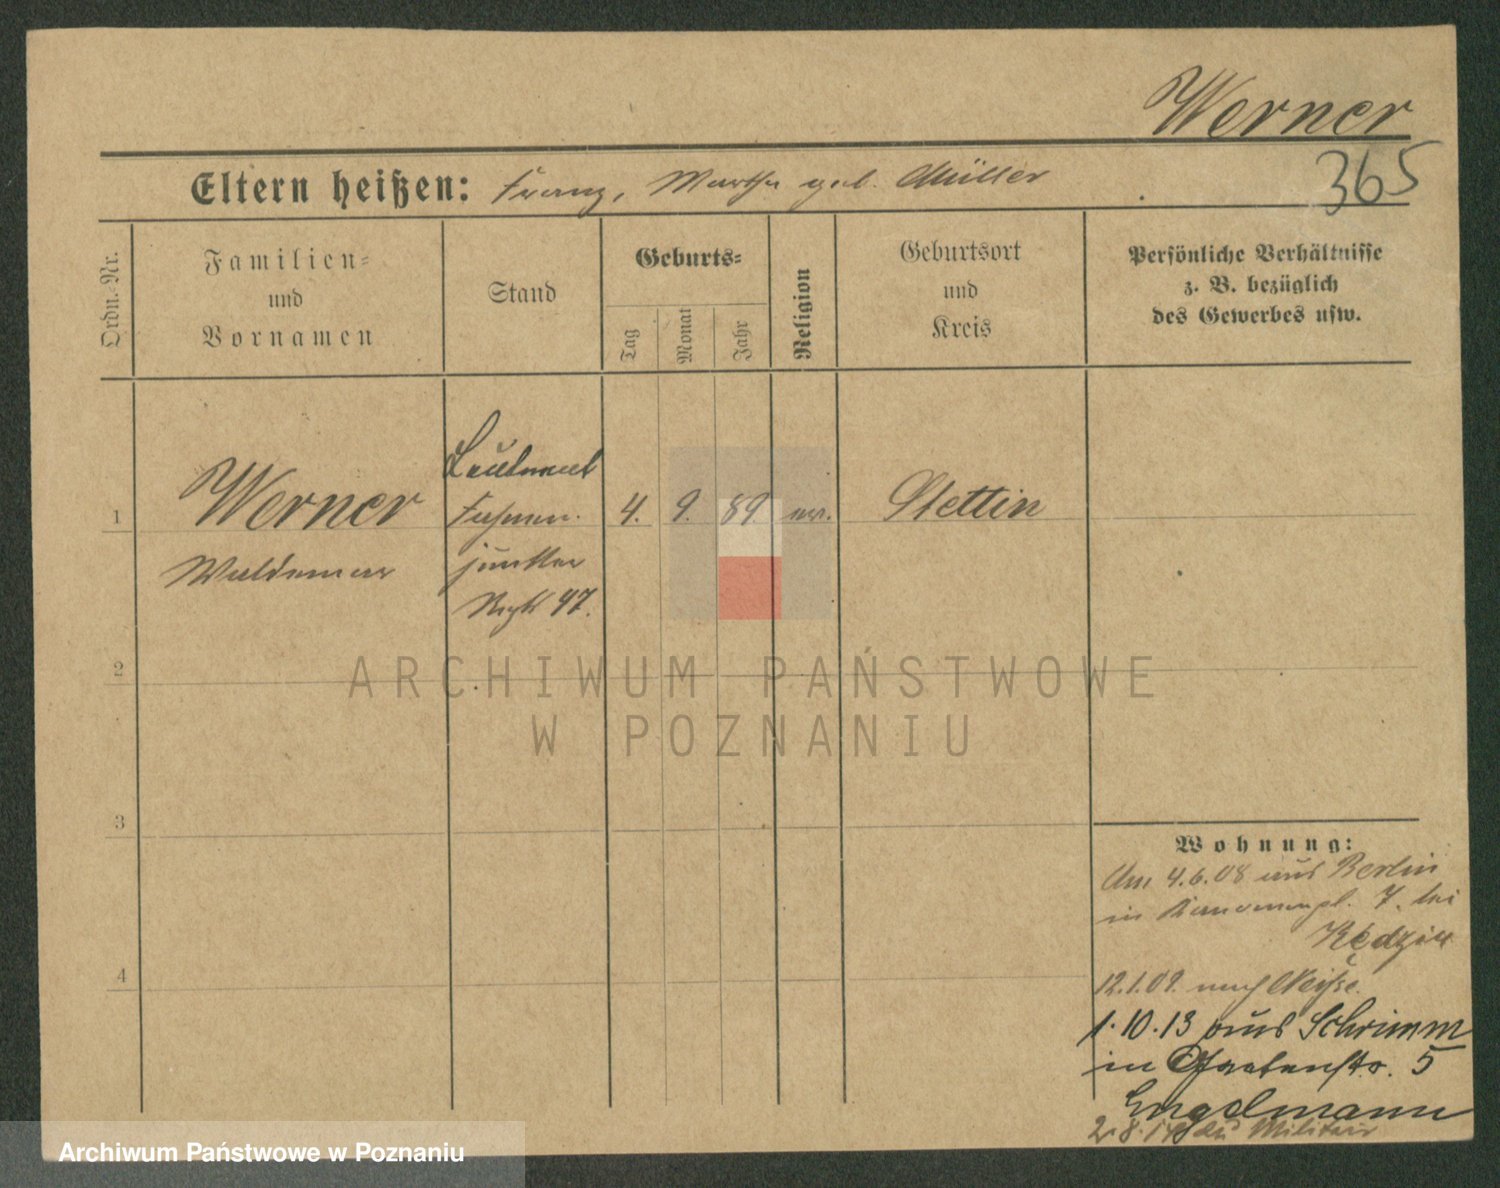 Werner
365
Eltern heißen: Franz, Martha geb. Müller
Ordn.-Nr.
Familien-
und
Vornamen
Stand
Geburts-
Tag
Monat
Jahr
Religion
Geburtsort
und
Kreis
Persönliche Verhältnisse
z. B. bezüglich
des Gewerbes usw.
1
Werner
Waldemar
Leutnant
Fahnen-
junker
Regt 47.
4. 9. 89 ev.
Stettin
2
3
4
Wohnung:
Am 4.6.08 aus Berlin
in 7. bei
12.1.09. nach Neiße.
1.10.13 aus Schrimm
in Gartenstr. 5
Engelmann
2.8.14 zu Militair
ARCHIWUM PAŃSTWOWE
W POZNANIU
Archiwum Państwowe w Poznaniu